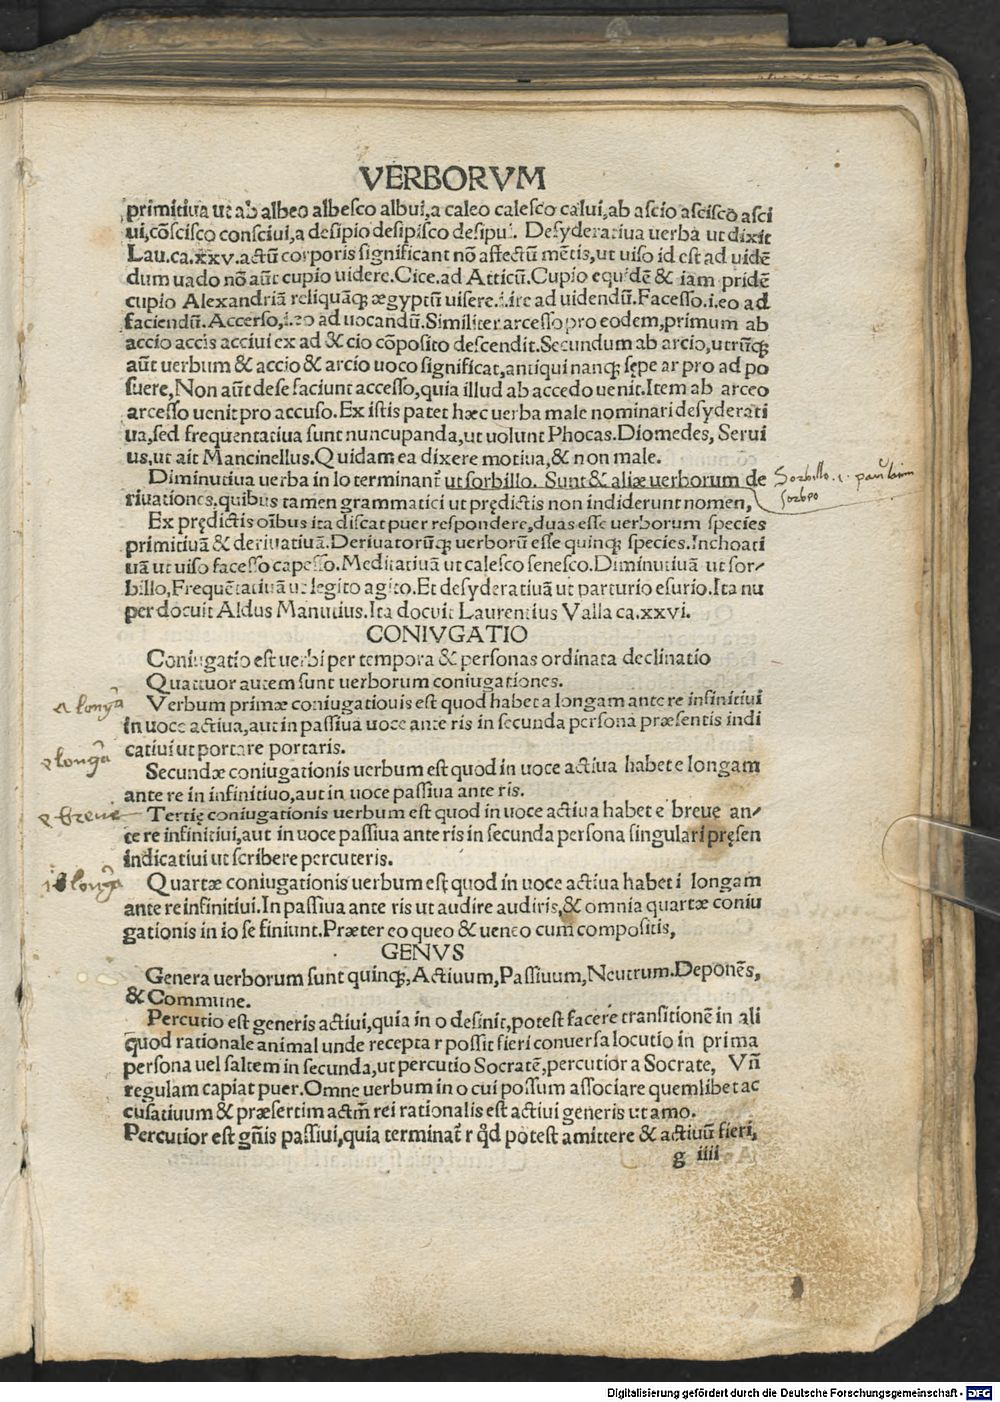 VERBORVM
primitiua ut ab albeo albesco albui, a caleo calesco calui, ab ascio ascisco asci
ui, cōscisco consciui, a desipio desipisco desipui. Desyderatiua uerba ut dixit
Lau.ca.xxv.actū corporis significant nō affectū mētis, ut uiso id est ad uidē
dum uado nō aūt cupio uidere. Cice. ad Atticū. Cupio equidē & iam pridē
cupio Alexandriā reliquāq; ægyptū uisere.i.ire ad uidendū. Facesso.i.eo ad
faciendū. Accerso,i.eo ad uocandū. Similiter arcesso pro eodem, primum ab
accio accis acciui ex ad & cio cōposito descendit. Secundum ab arcio, utrūq;
aūt uerbum & accio & arcio uoco significat, antiqui nanq; sępe ar pro ad po
suere, Non aūt dese faciunt accesso, quia illud ab accedo uenit. Item ab arceo
arcesso uenit pro accuso. Ex istis patet hæc uerba male nominari desyderati
ua, sed frequentatiua sunt nuncupanda, ut uolunt Phocas. Diomedes, Serui
us, ut ait Mancinellus. Quidam ea dixere motiua, & non male.
Diminutiua uerba in lo terminant᷑ ut sorbillo. Sunt & aliæ uerborum de
riuationes, quibus tamen grammatici ut prędictis non indiderunt nomen,
Sorbillo .i. paulatim
sorbeo
Ex prędictis oībus ita discat puer respondere, duas esse uerborum species
primitiuā & deriuatiuā. Deriuatorūq; uerborū esse quinq; species. Inchoati
uā ut uiso facesso capesso. Meditatiuā ut calesco senesco. Diminutiuā ut sor-
billo, Frequētatiuā ut legito agito. Et desyderatiuā ut parturio esurio. Ita nu
per docuit Aldus Manutius. Ita docuit Laurentius Valla ca.xxvi.
CONIVGATIO
Coniugatio est uerbi per tempora & personas ordinata declinatio
Quattuor autem sunt uerborum coniugationes.
a longā
Verbum primæ coniugatiouis est quod habet a longam ante re infinitiui
in uoce actiua, aut in passiua uoce ante ris in secunda persona præsentis indi
catiui ut portare portaris.
e longā
Secundæ coniugationis uerbum est quod in uoce actiua habet e longam
ante re in infinitiuo, aut in uoce passiua ante ris.
e breue
Tertię coniugationis uerbum est quod in uoce actiua habet e breuę an-
te re infinitiui, aut in uoce passiua ante ris in secunda persona singulari pręsen
indicatiui ut scribere percuteris.
i longā
Quartæ coniugationis uerbum est quod in uoce actiua habet i longam
ante re infinitiui. In passiua ante ris ut audire audiris, & omnia quartæ coniu
gationis in io se finiunt. Præter eo queo & ueneo cum compositis,
GENVS
Genera uerborum sunt quinq;, Actiuum, Passiuum, Neutrum. Deponēs,
& Commune.
Percutio est generis actiui, quia in o desinit, potest facere transitionē in ali
quod rationale animal unde recepta r possit fieri conuersa locutio in prima
persona uel saltem in secunda, ut percutio Socratē, percutior a Socrate, Vñ
regulam capiat puer. Omne uerbum in o cui possum associare quemlibet ac
cusatiuum & præsertim actm̄ rei rationalis est actiui generis ut amo.
Percutior est gñis passiui, quia terminat᷑ r q̇d potest amittere & actiuū fieri,
g iiii
Digitalisierung gefördert durch die Deutsche Forschungsgemeinschaft - DFG